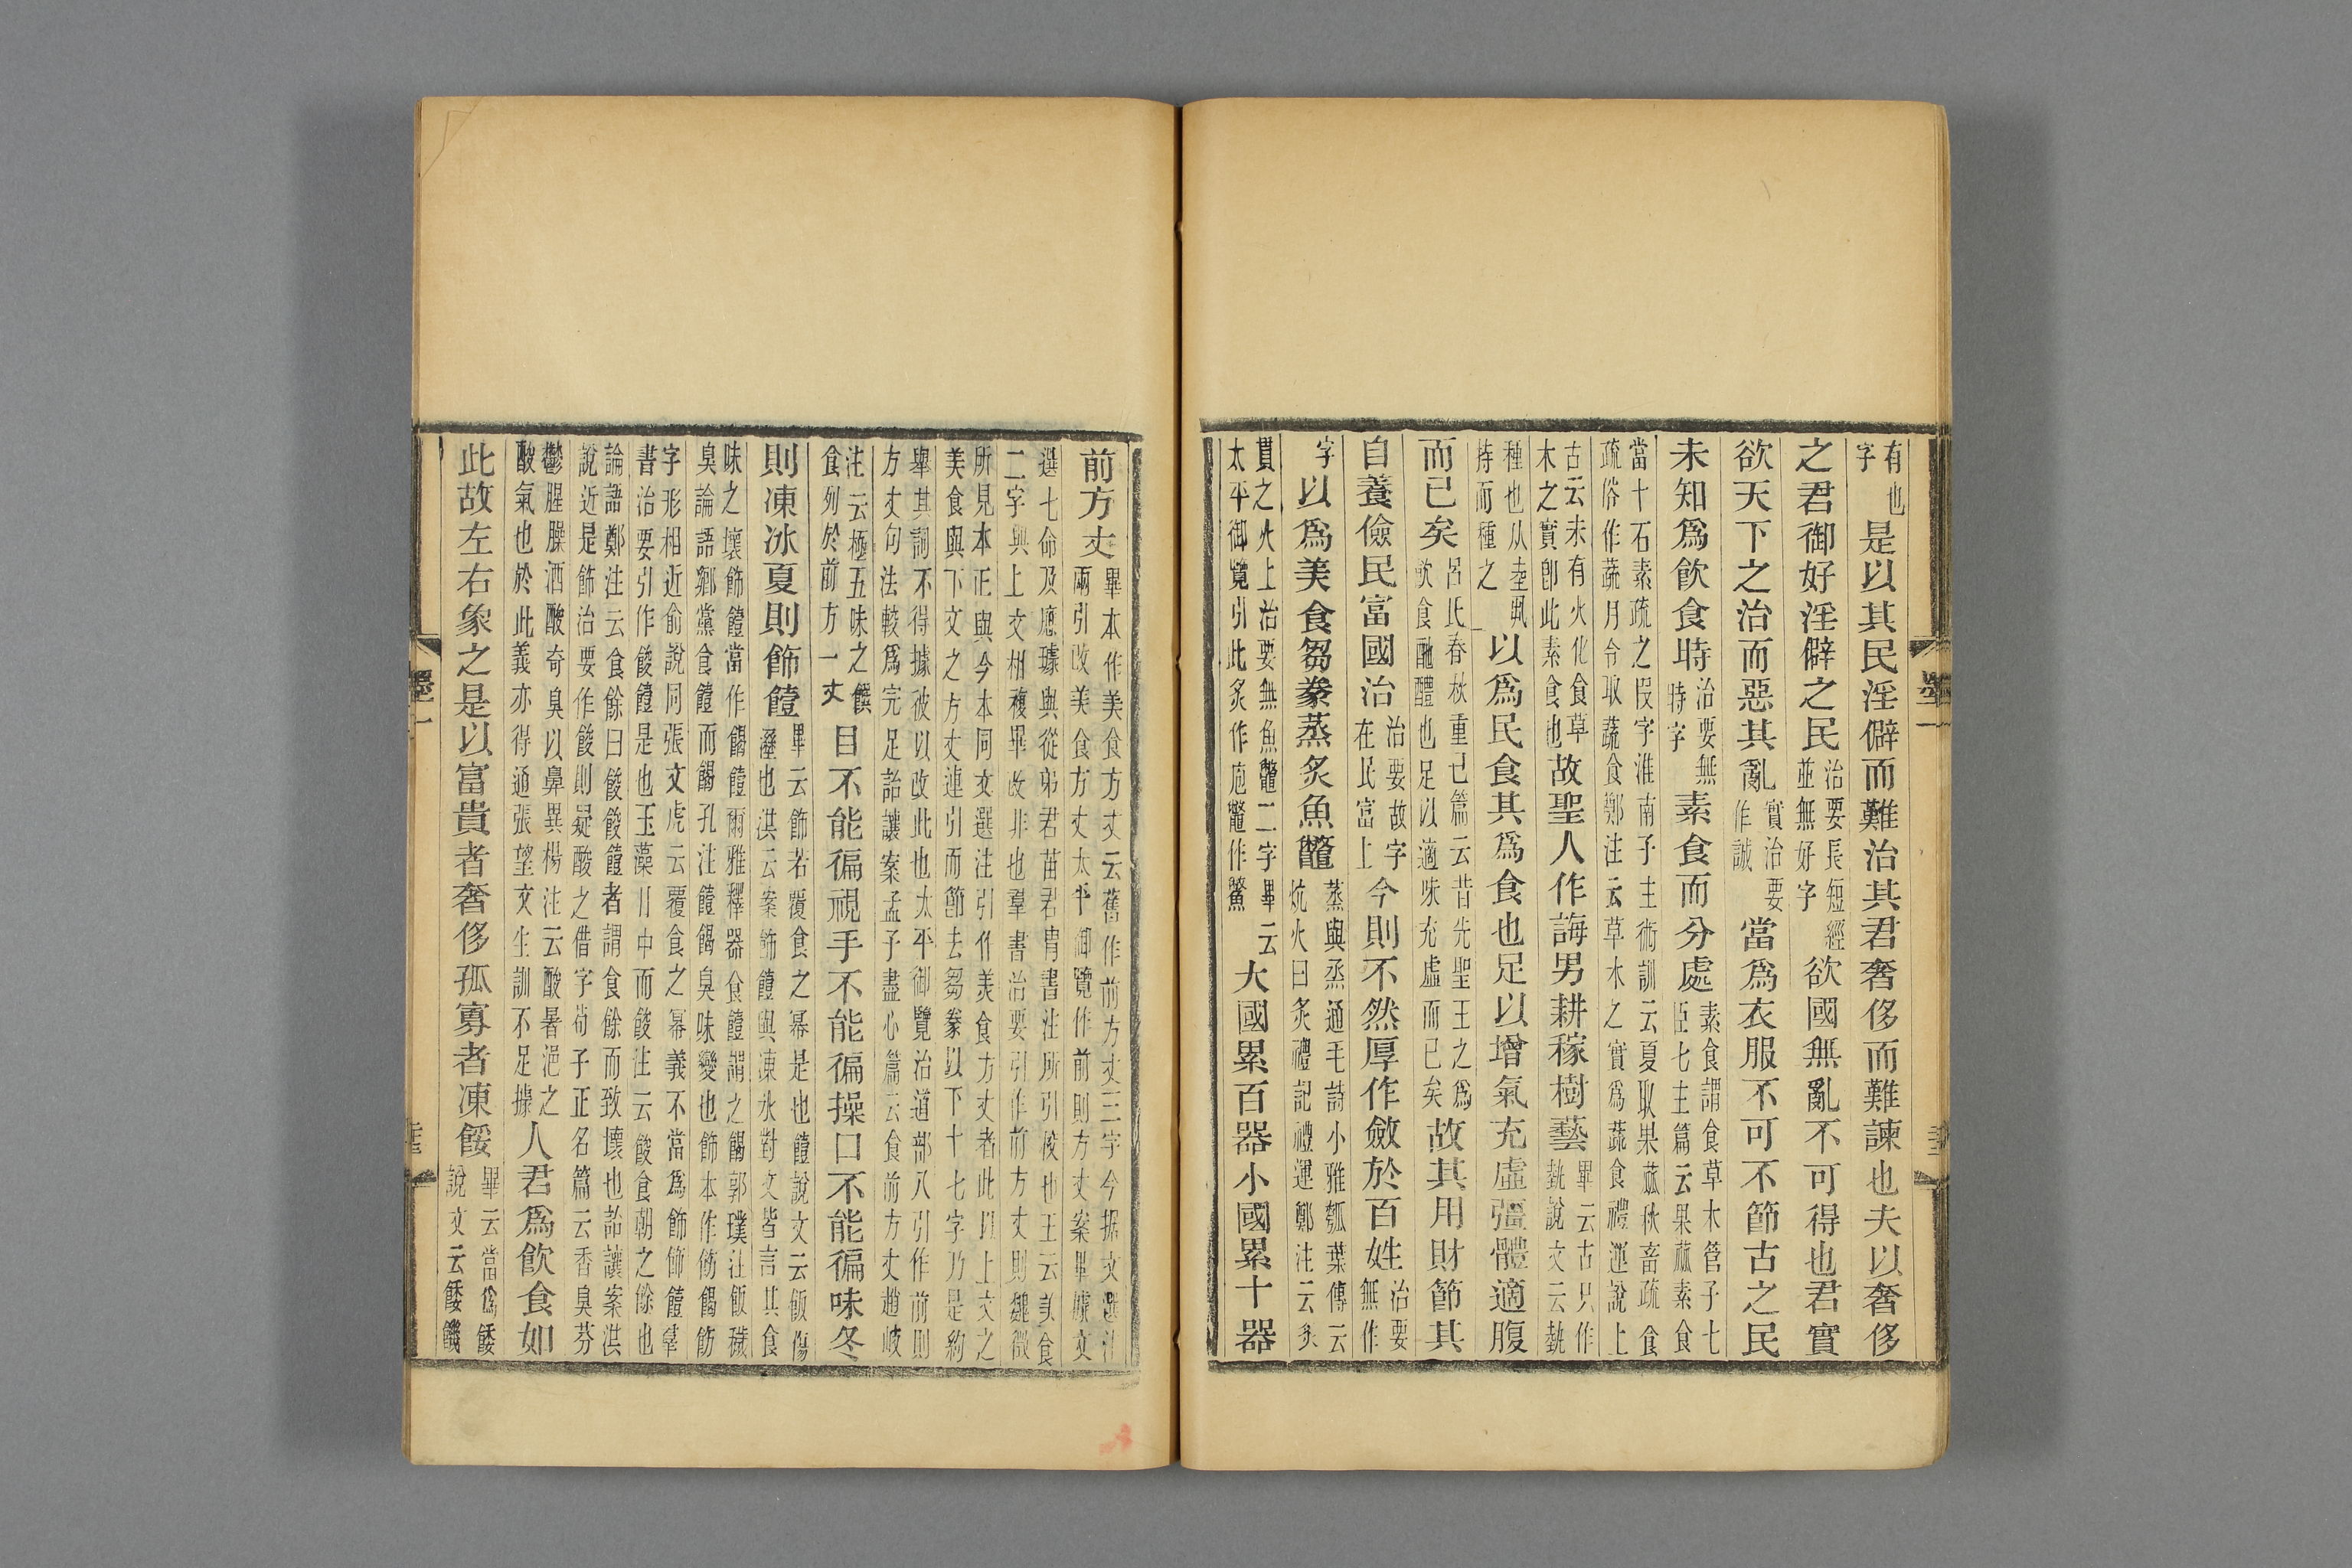 有也字是以其民淫僻而難治其君奢侈而難諫也夫以奢侈
之君御好淫僻之民治要長短經並無好字欲國無亂不可得也君實
欲天下之治而惡其亂實治要作誠當爲衣服不可不節古之民
未知爲飲食時治要無時字素食而分處素食謂食草木管子七臣七主篇云果蓏素食
當十石素疏之叚字淮南子主術訓云夏取果蓏秋畜疏食疏俗作蔬月令取蔬食鄭注云草木之實爲蔬食禮運說上
古云未有火化食草木之實卽此素食也故聖人作誨男耕稼樹藝畢云古只作埶說文云埶
種也从坴丮持而種之以爲民食其爲食也足以增氣充虛彊體適腹
而已矣呂氏春秋重己篇云昔先聖王之爲飲食酏醴也足以適味充虛而已矣故其用財節其
自養儉民富國治治要故字在民富上今則不然厚作斂於百姓治要無作
字以爲美食芻豢蒸炙魚鼈蒸與烝通毛詩小雅瓠葉傳云炕火曰炙禮記禮運鄭注云炙
貫之火上治要無魚鼈二字畢云太平御覽引此炙作庖鼈作鱉大國累百器小國累十器
前方丈畢本作美食方丈云舊作前方丈三字今据文選注兩引改美食方丈太平御覽作前則方丈案畢據文
選七命及應璩與從弟君苗君冑書注所引校也王云美食二字與上文相複畢改非也羣書治要引作前方丈則魏徵
所見本正與今本同文選注引作美食方丈者此以上文之美食與下文之方丈連引而節去芻豢以下十七字乃是約
舉其詞不得據彼以改此也太平御覽治道部八引作前則方丈句法較爲完足詒讓案孟子盡心篇云食前方丈趙岐
注云極五味之饌食列於前方一丈目不能徧視手不能徧操口不能徧味冬
則凍冰夏則飾饐畢云飾若覆食之幂是也饐說文云飯傷溼也洪云案飾饐與凍冰對文皆言其食
味之壞飾饐當作餲饐爾雅釋器食饐謂之餲郭璞注飯穢臭論語鄉黨食饐而餲孔注饐餲臭味變也飾本作飭餲飭
字形相近俞說同張文虎云覆食之幂義不當爲飾飾饐羣書治要引作餕饐是也玉藻日中而餕注云餕食朝之餘也
論語鄭注云食餘曰餕餕饐者謂食餘而致壞也詒讓案洪說近是飾治要作餕則疑酸之借字荀子正名篇云香臭芬
鬱腥臊洒酸奇臭以鼻異楊注云酸暑浥之酸氣也於此義亦得通張望文生訓不足據人君爲飲食如
此故左右象之是以富貴者奢侈孤寡者凍餒畢云當爲餧說文云餧饑
墨一